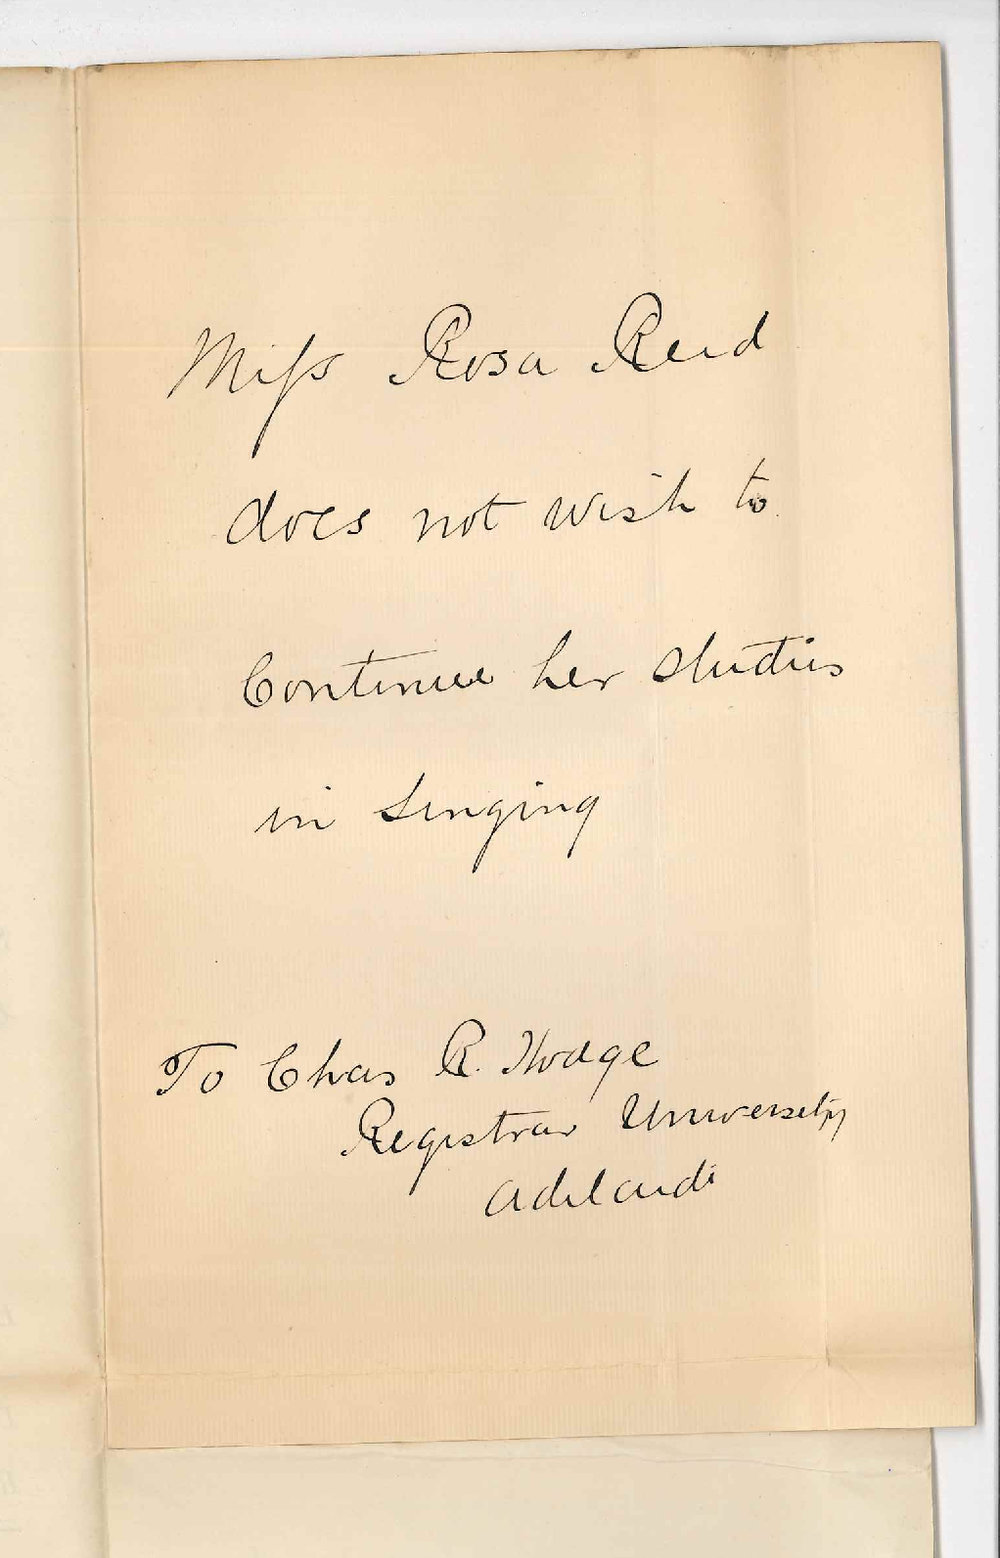 Miss Rosa Reid
does not wish to
Continue her studies
in Singing
To Chas R. Hodge
Registrar University
Adelaide